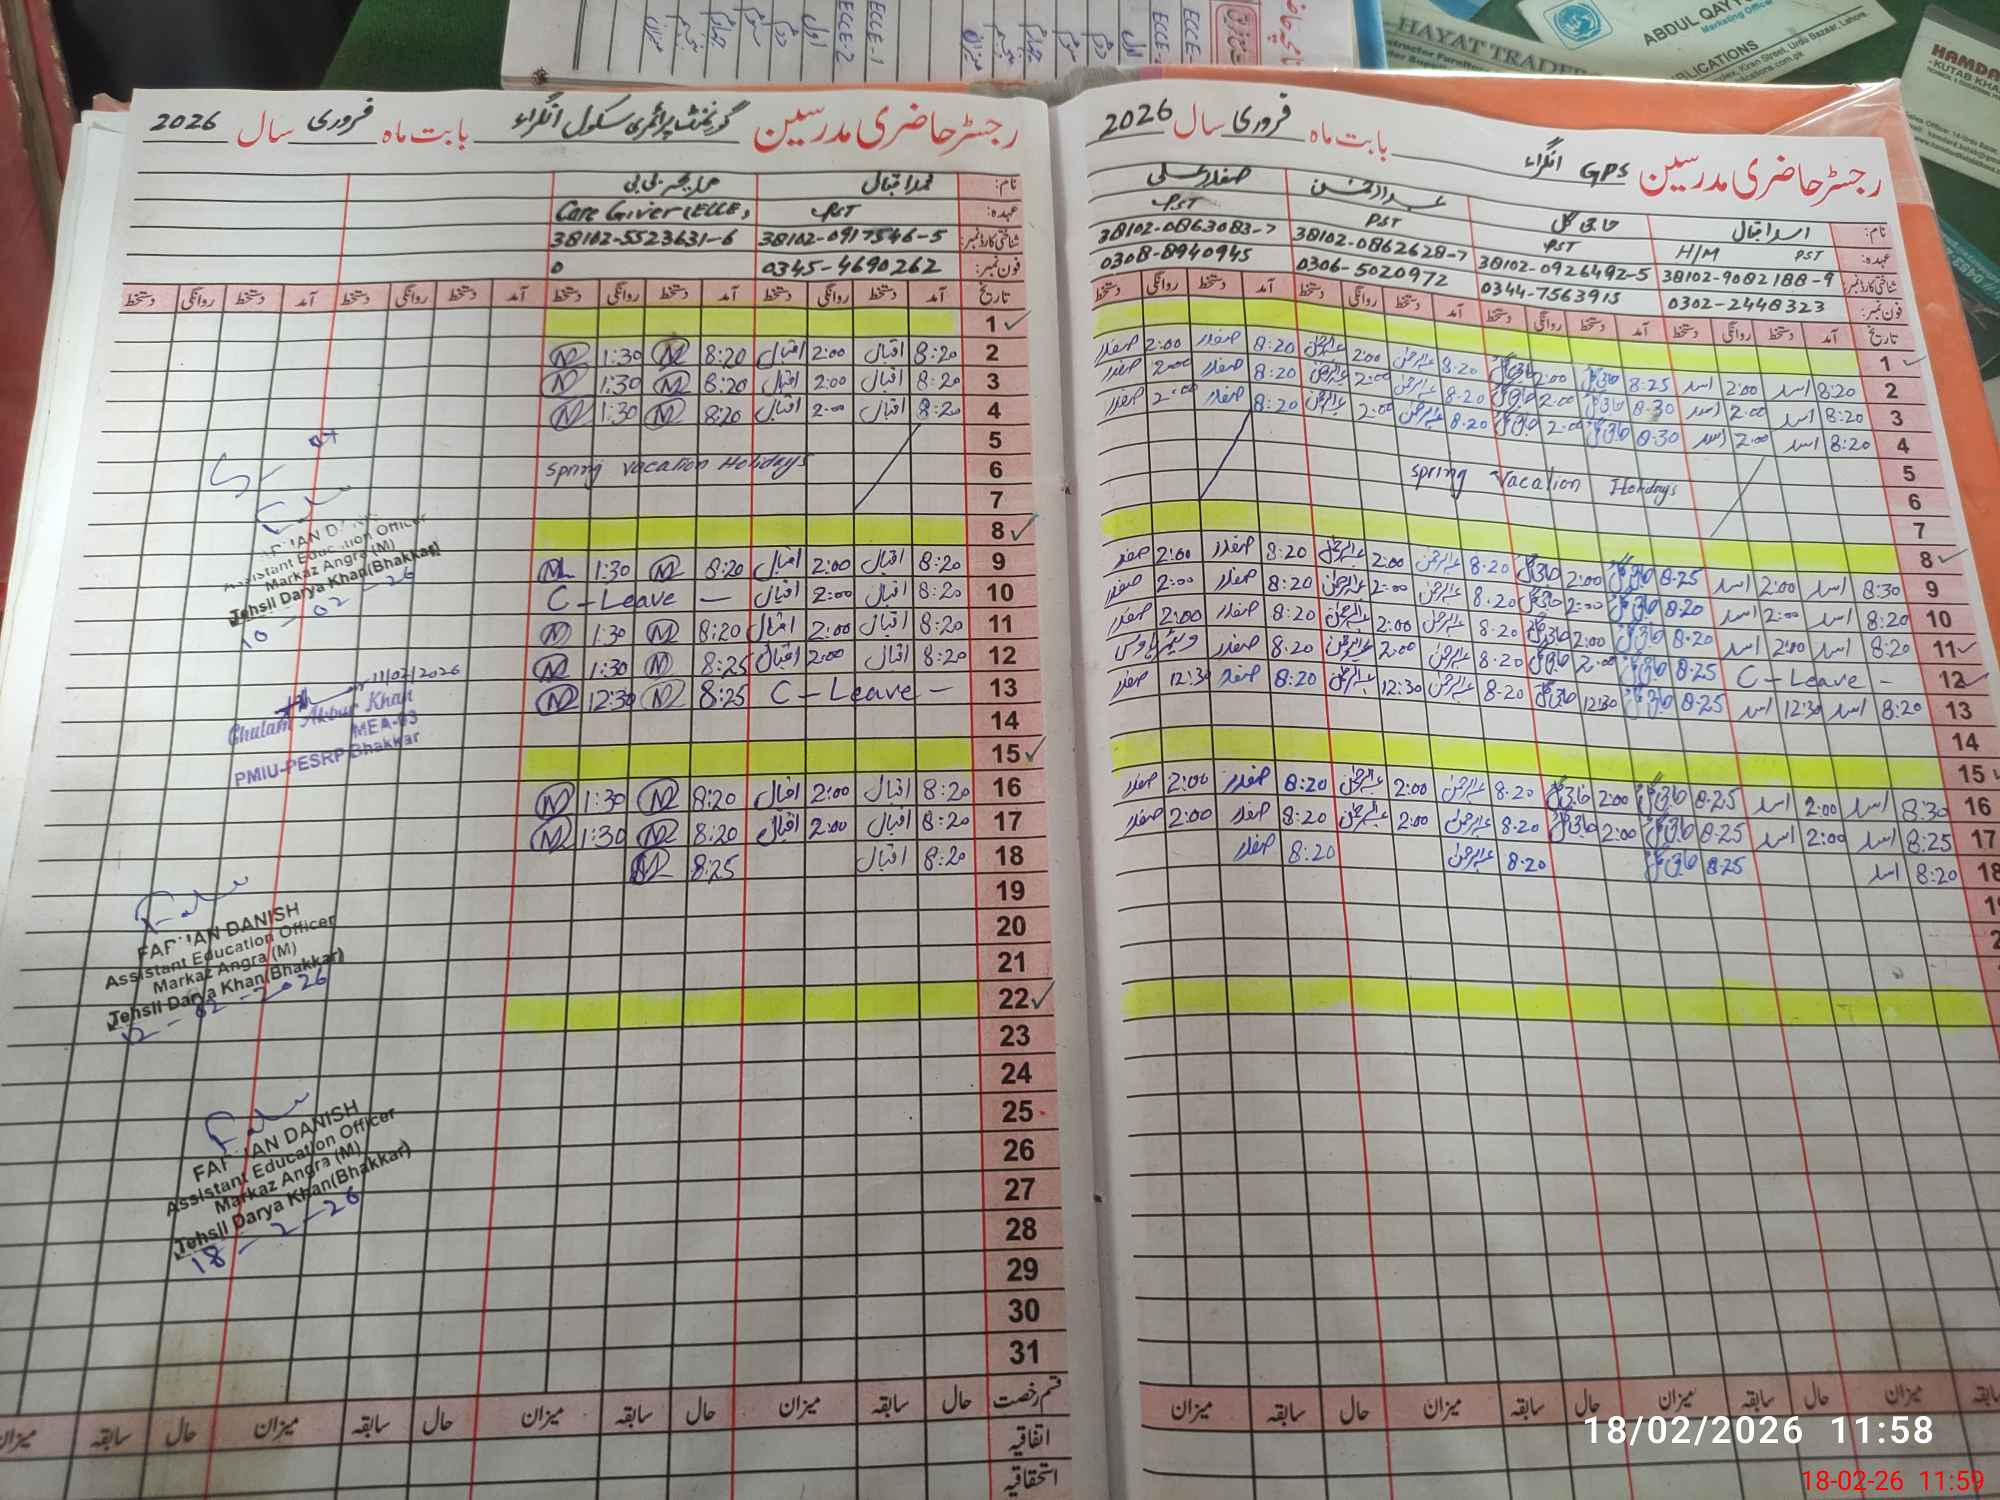 ECCE-1
ECCE-2
اول
دوئم
سوئم
چہارم
پنجم
میزان
HAYAT TRADERS
ABDUL QAYY
Marketing Officer
PUBLICATIONS
Kiran Street, Urdu Bazaar, Lahore.
HAMDA
رجسٹر حاضری مدرسین گورنمنٹ پرائمری سکول انگراء بابت ماہ فروری سال 2026
نام: محمد اقبال
عہدہ: PST Care Giver (ECCE)
شناختی کارڈ نمبر: 38102-0917546-5 38102-5523631-6
فون نمبر: 0345-4690262 0
تاریخ آمد دستخط روانگی دستخط آمد دستخط روانگی دستخط آمد دستخط روانگی دستخط آمد دستخط روانگی دستخط
1
2 8:20 اقبال 2:00 اقبال 8:20 1:30
3 8:20 اقبال 2:00 اقبال 8:20 1:30
4 8:20 اقبال 2:00 اقبال 8:20 1:30
5
6 Spring Vacation Holidays
7
8
9 8:20 اقبال 2:00 اقبال 8:20 1:30
10 8:20 اقبال 2:00 اقبال C-Leave -
11 8:20 اقبال 2:00 اقبال 8:20 1:30
12 8:20 اقبال 2:00 اقبال 8:25 1:30
13 C-Leave - 8:25 12:30
14
15
16 8:20 اقبال 2:00 اقبال 8:20 1:30
17 8:20 اقبال 2:00 اقبال 8:20 1:30
18 8:20 اقبال 8:25
19
20
21
22
23
24
25
26
27
28
29
30
31
قسم رخصت حال سابقہ میزان حال سابقہ میزان حال سابقہ میزان حال سابقہ میزان
اتفاقیہ
استحقاقیہ
Assistant Education Officer
Markaz Angra (M)
Tehsil Darya Khan(Bhakkar)
10-02-26
11/02/2026
Ghulam Akbar Khan
MEA-03
PMIU-PESRP Bhakkar
DANISH
Assistant Education Officer
Markaz Angra (M)
Tehsil Darya Khan(Bhakkar)
12-02-2026
DANISH
Assistant Education Officer
Markaz Angra (M)
Tehsil Darya Khan(Bhakkar)
18-2-26
رجسٹر حاضری مدرسین GPS انگراء بابت ماہ فروری سال 2026
نام: اسد اقبال حاجی گل عبدالرحمٰن صفدر علی
عہدہ: PST H/M PST PST PST
شناختی کارڈ نمبر: 38102-9082188-9 38102-0926492-5 38102-0862628-7 38102-0863083-7
فون نمبر: 0302-2448323 0344-7563915 0306-5020972 0308-8940945
تاریخ آمد دستخط روانگی دستخط آمد دستخط روانگی دستخط آمد دستخط روانگی دستخط آمد دستخط روانگی دستخط
1
2 8:20 اسد 2:00 اسد 8:25 حاجی گل 2:00 حاجی گل 8:20 عبدالرحمٰن 2:00 عبدالرحمٰن 8:20 صفدر 2:00 صفدر
3 8:20 اسد 2:00 اسد 8:30 حاجی گل 2:00 حاجی گل 8:20 عبدالرحمٰن 2:00 عبدالرحمٰن 8:20 صفدر 2:00 صفدر
4 8:20 اسد 2:00 اسد 8:30 حاجی گل 2:00 حاجی گل 8:20 عبدالرحمٰن 2:00 عبدالرحمٰن 8:20 صفدر 2:00 صفدر
5
6 Spring Vacation Holidays
7
8
9 8:30 اسد 2:00 اسد 8:25 حاجی گل 2:00 حاجی گل 8:20 عبدالرحمٰن 2:00 عبدالرحمٰن 8:20 صفدر 2:00 صفدر
10 8:20 اسد 2:00 اسد 8:20 حاجی گل 2:00 حاجی گل 8:20 عبدالرحمٰن 2:00 عبدالرحمٰن 8:20 صفدر 2:00 صفدر
11 8:20 اسد 2:00 اسد 8:20 حاجی گل 2:00 حاجی گل 8:20 عبدالرحمٰن 2:00 عبدالرحمٰن 8:20 صفدر 2:00 صفدر
12 C-Leave - 8:25 حاجی گل 2:00 حاجی گل 8:20 عبدالرحمٰن 2:00 عبدالرحمٰن 8:20 صفدر
13 8:20 اسد 12:30 اسد 8:25 حاجی گل 12:30 حاجی گل 8:20 عبدالرحمٰن 12:30 عبدالرحمٰن 8:20 صفدر 12:30 صفدر
14
15
16 8:30 اسد 2:00 اسد 8:25 حاجی گل 2:00 حاجی گل 8:20 عبدالرحمٰن 2:00 عبدالرحمٰن 8:20 صفدر 2:00 صفدر
17 8:25 اسد 2:00 اسد 8:25 حاجی گل 2:00 حاجی گل 8:20 عبدالرحمٰن 2:00 عبدالرحمٰن 8:20 صفدر 2:00 صفدر
18 8:20 اسد 8:25 حاجی گل 8:20 عبدالرحمٰن 8:20 صفدر
میزان سابقہ حال میزان سابقہ حال میزان سابقہ حال میزان
18/02/2026 11:58
18-02-26 11:59